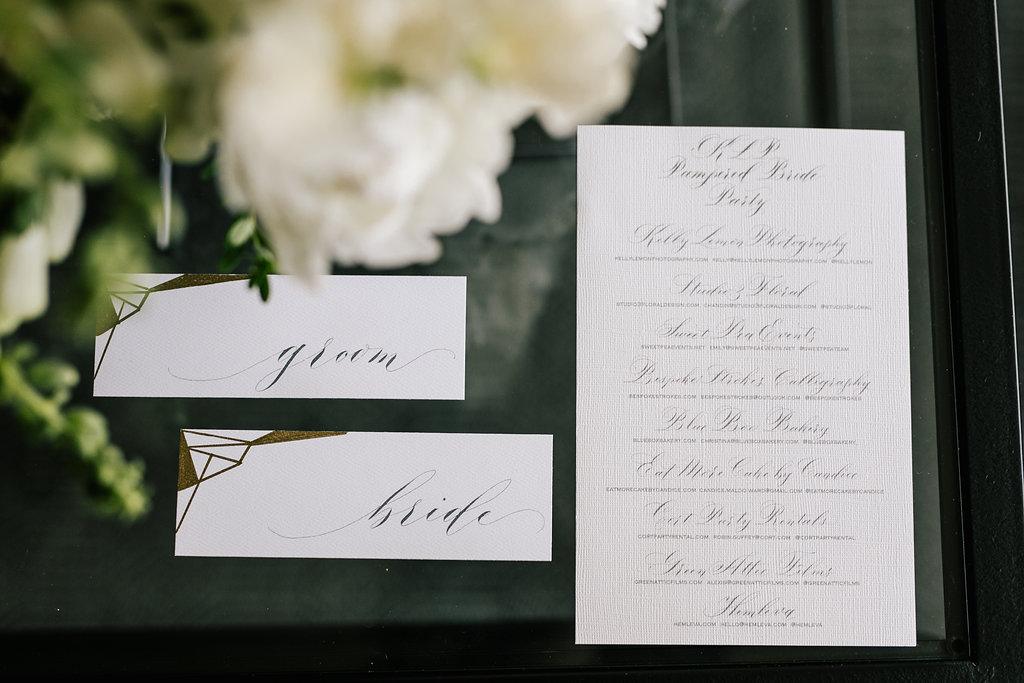 groom
bride
KLP
Pampered Bride
Party
Kelly Lemon Photography
KELLYLEMONPHOTOGRAPHY.COM KELLY@KELLYLEMONPHOTOGRAPHY.COM @KELLYLEMON
Studio 3 Floral
STUDIO3FLORALDESIGN.COM @STUDIO3FLORAL
Sweet Pea Events
SWEETPEAEVENTS.NET @SWEETPEATEAM
Bespoke Strokes Calligraphy
BESPOKESTROKES.COM BESPOKESTROKES@OUTLOOK.COM @BESPOKESTROKES
Blue Box Bakery
BLUEBOXBAKERY.COM CHRISTINA@BLUEBOXBAKERY.COM @BLUEBOXBAKERY
Eat More Cake by Candice
EATMORECAKEBYCANDICE.COM @EATMORECAKEBYCANDICE
Cort Party Rentals
CORTPARTYRENTAL.COM ROBIN.GUFFEY@CORT.COM @CORTPARTYRENTAL
Green Attic Films
GREENATTICFILMS.COM ALEXIS@GREENATTICFILMS.COM @GREENATTICFILMS
Hemleva
HEMLEVA.COM HELLO@HEMLEVA.COM @HEMLEVA